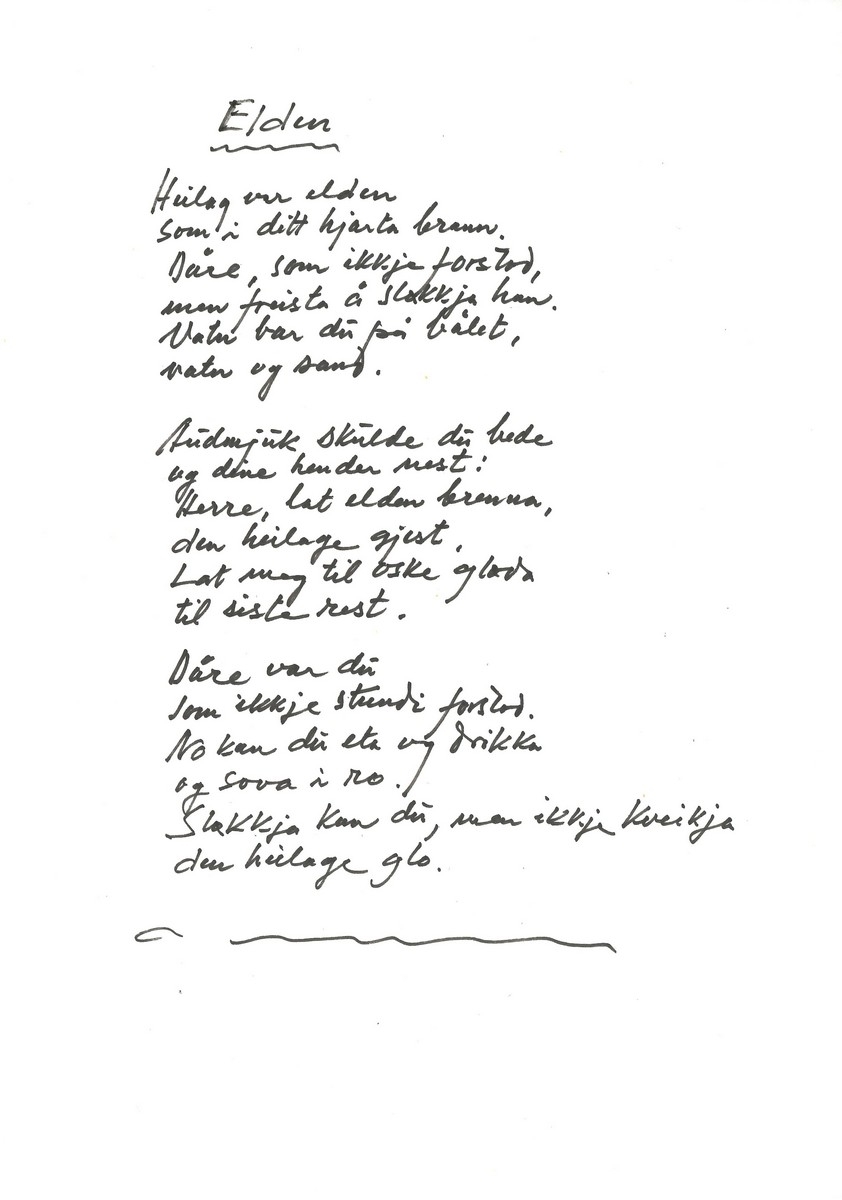 Elden
Heilag var elden
som i ditt hjarta brann.
Dåre, som ikkje forstod,
men freista å sløkkja han.
Vatn bar du på bålet,
vatn og sand.
Audmjuk skulde du bede
og dine hender nest:
Herre, lat elden brenna,
den heilage gjest,
Lat meg til oske gløda
til siste rest.
Dåre var du
som ikkje stundi forstod.
No kan du eta og drikka
og sova i ro.
Sløkkja kan du, men ikkje kveikja
den heilage glo.